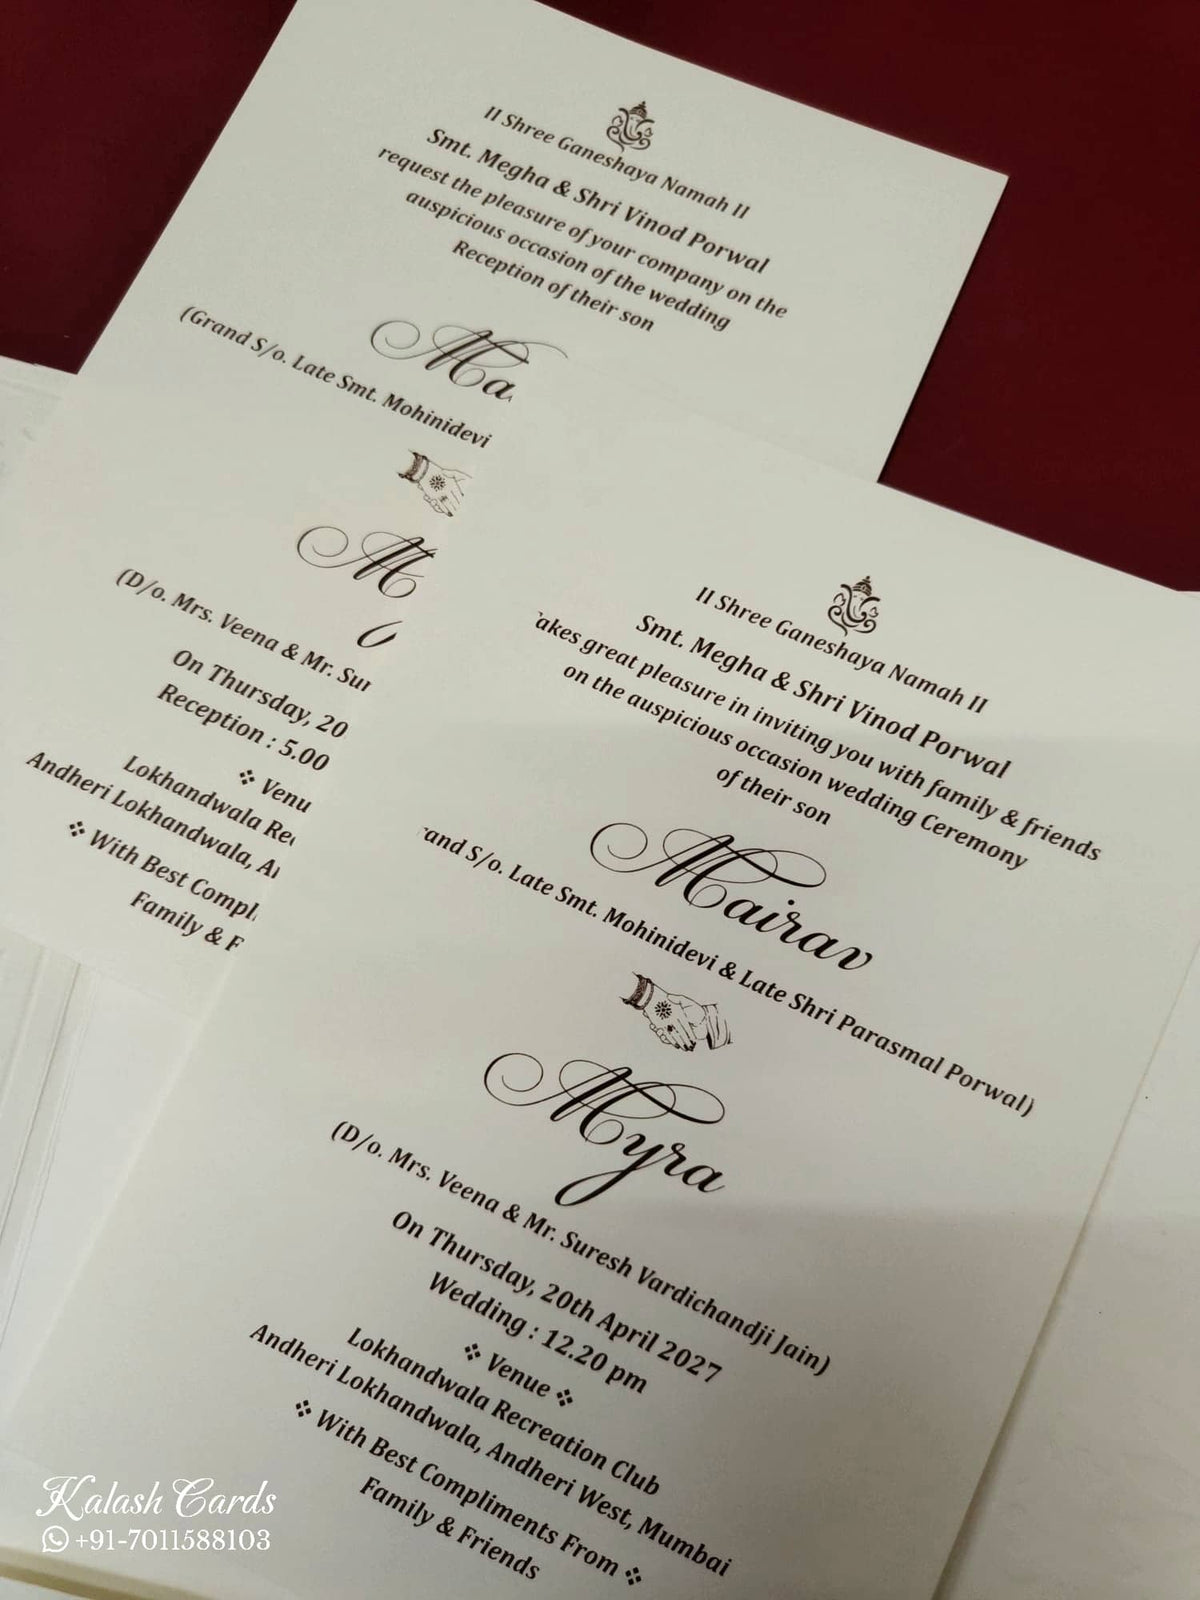 II Shree Ganeshaya Namah II
Smt. Megha & Shri Vinod Porwal
request the pleasure of your company on the
auspicious occasion of the wedding
Reception of their son
(Grand S/o. Late Smt. Mohinidevi
(D/o. Mrs. Veena & Mr.
On Thursday, 20
Reception : 5.00
Lokhandwala
Andheri Lokhandwala,
With Best
Family &
II Shree Ganeshaya Namah II
Smt. Megha & Shri Vinod Porwal
great pleasure in inviting you with family & friends
on the auspicious occasion wedding Ceremony
of their son
Mairav
S/o. Late Smt. Mohinidevi & Late Shri Parasmal Porwal)
Myra
(D/o. Mrs. Veena & Mr. Suresh Vardichandji Jain)
On Thursday, 20th April 2027
Wedding : 12.20 pm
Venue
Lokhandwala Recreation Club
Andheri Lokhandwala, Andheri West, Mumbai
With Best Compliments From
Family & Friends
Kalash Cards
+91-7011588103